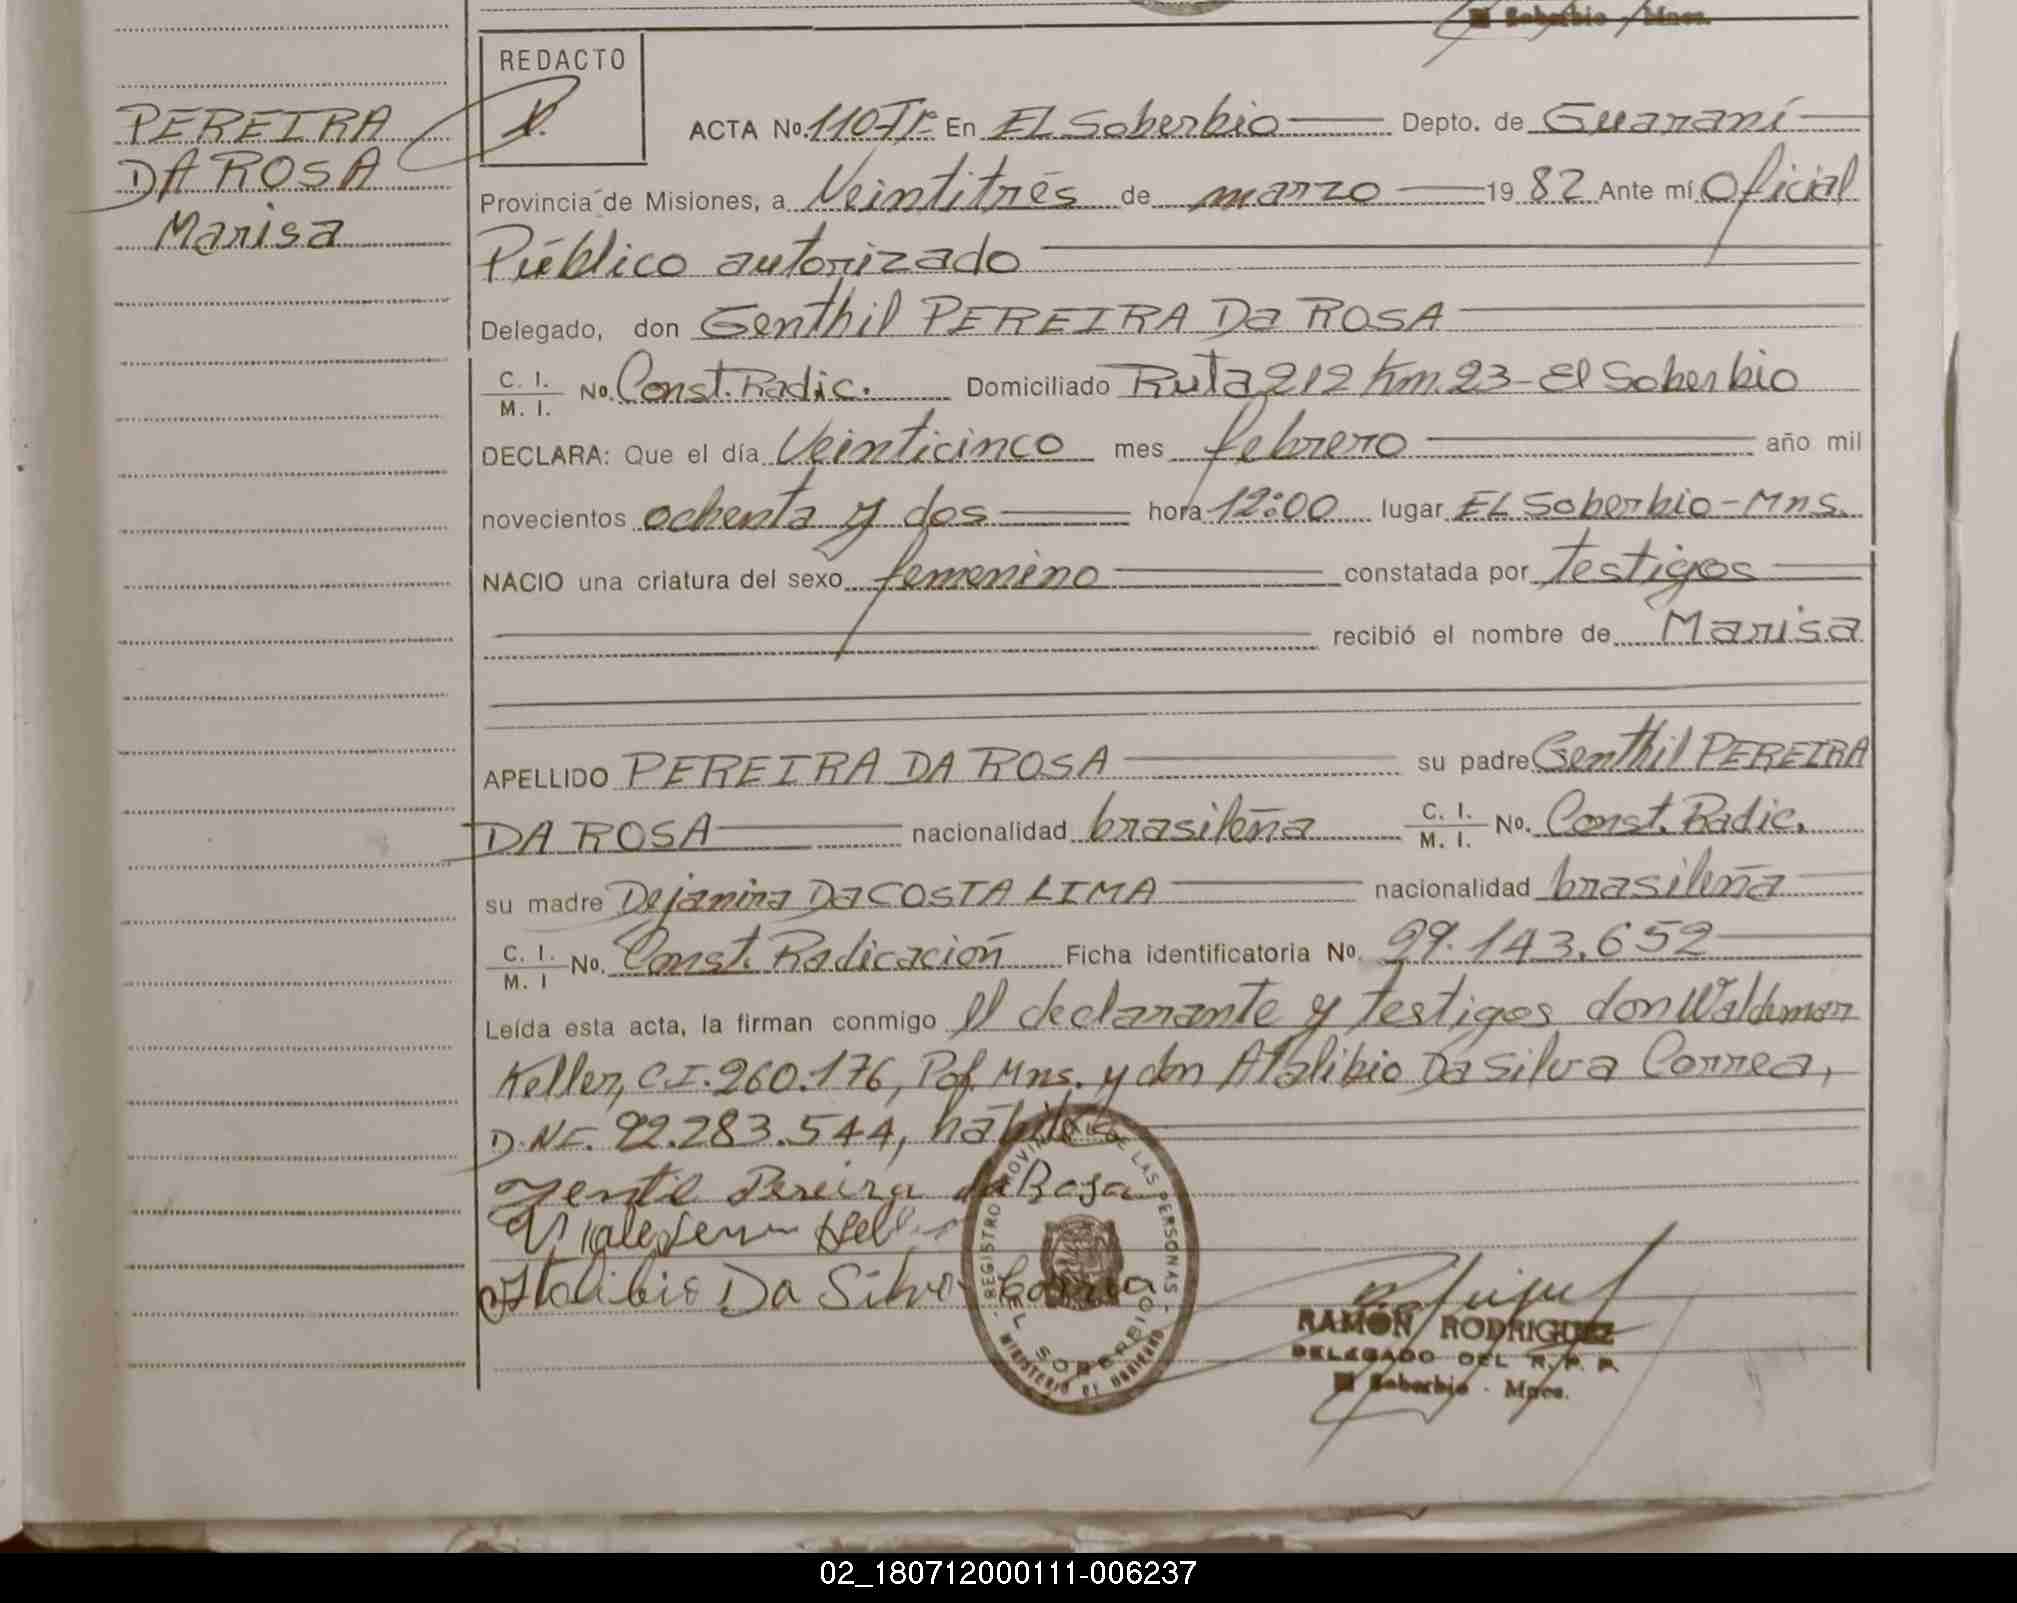 El Soberbio - Mnes.
REDACTO
PEREIRA
DA ROSA
Marisa
ACTA No. 110-Tº- En EL Soberbio Depto. de Guaraní
Provincia de Misiones, a Veintitrés de marzo 19 82 Ante mí Oficial
Público autorizado
Delegado, don Genthil PEREIRA Da ROSA
C. I. / M. I. No. Const. Radic. Domiciliado Ruta 212 Km. 23 - El Soberbio
DECLARA: Que el día Veinticinco mes febrero año mil
novecientos ochenta y dos hora 12:00 lugar EL Soberbio - Mns.
NACIO una criatura del sexo femenino constatada por testigos
recibió el nombre de Marisa
APELLIDO PEREIRA DA ROSA su padre Genthil PEREIRA
DA ROSA nacionalidad brasileña C. I. / M. I. No. Const. Radic.
su madre Dejanira Da COSTA LIMA nacionalidad brasileña
C. I. / M. I No. Const. Radicación Ficha identificatoria No. 99.143.652
Leída esta acta, la firman conmigo el declarante y testigos don Waldemar
Keller, C.I. 260.176, Pol. Mns. y don Atalibio Da Silva Correa,
D.N.I. 92.283.544, hábiles
Gentil Pereira da Rosa
Atalibio Da Silva Correa
REGISTRO PROVINCIAL DE LAS PERSONAS
EL SOBERBIO
MINISTERIO DE GOBIERNO
RAMÓN RODRIGUEZ
DELEGADO DEL R. P. P.
El Soberbio - Mnes.
02_180712000111-006237